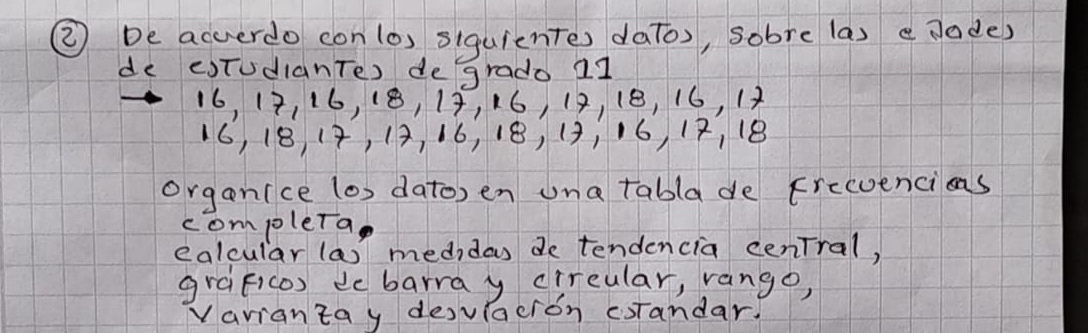 ② De acuerdo con los siguientes datos, sobre las edades
de estudiantes de grado 11
→ 16, 17, 16, 18, 17, 16, 17, 18, 16, 17
16, 18, 17, 17, 16, 18, 17, 16, 17, 18
organice los datos en una tabla de frecuencias
completa.
calcular las medidas de tendencia central,
gráficos de barra y circular, rango,
varianza y desviación estandar.